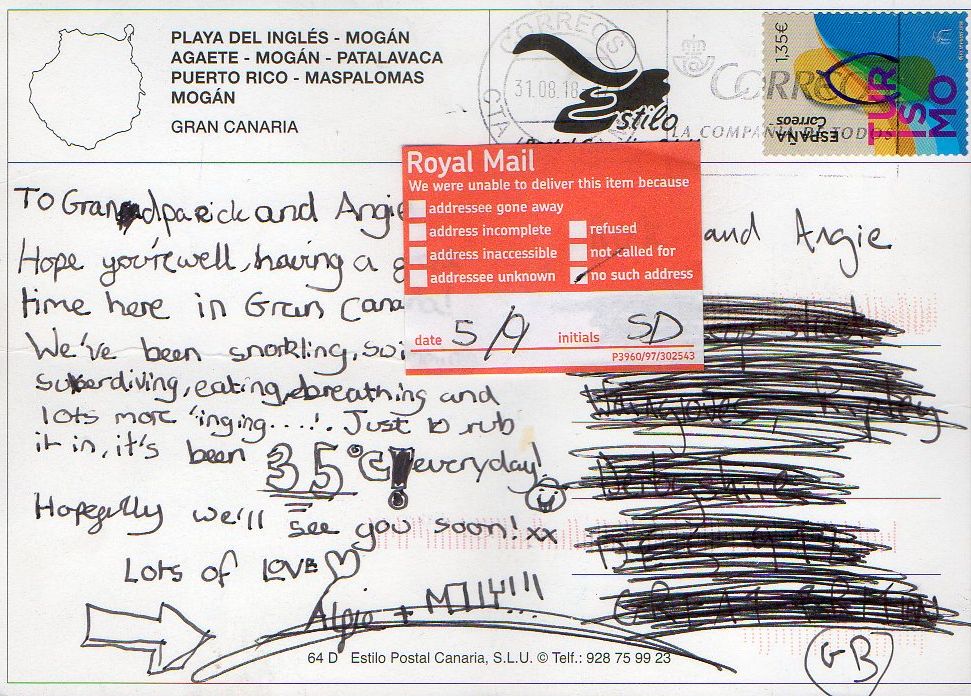 PLAYA DEL INGLÉS - MOGÁN
AGAETE - MOGÁN - PATALAVACA
PUERTO RICO - MASPALOMAS
MOGÁN
GRAN CANARIA
CORREOS
31.08.18
CTA
Estilo
CORREOS
LA COMPAÑÍA DE TODOS
1,35€
ESPAÑA
Correos
TURISMO
Royal Mail
We were unable to deliver this item because
addressee gone away
address incomplete
address inaccessible
addressee unknown
refused
not called for
no such address
date 5/9 initials SD
P3960/97/302543
To Grandparick and Angie
Hope you're well, having a
time here in Gran Cana
We've been snorkling,
suberdiving, eating, breathing and
lots more 'inging....!. Just to rub
it in, it's been 35°C! everyday!
Hopefully we'll see you soon! xx
Lots of LOVE
Algie + MIIY!!!
and Angie
Ripley
Derbyshire
GREAT BRITAIN
(GB)
64 D Estilo Postal Canaria, S.L.U. © Telf.: 928 75 99 23